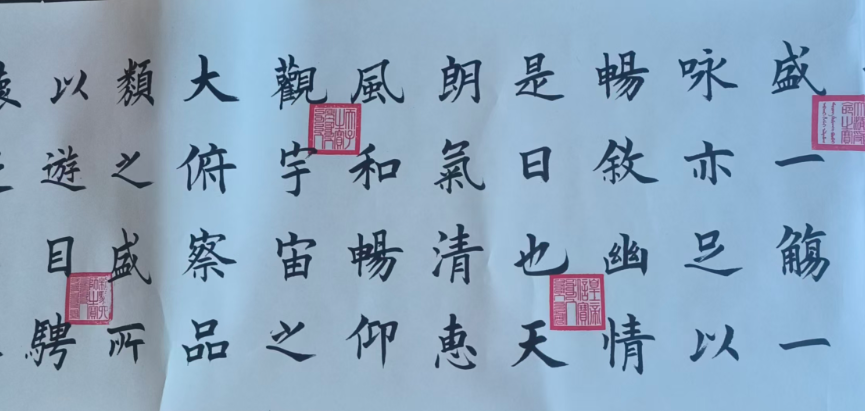 盛一觴一
咏亦足以
暢敘幽情
是日也天
朗氣清惠
風和暢仰
觀宇宙之
大俯察品
類之盛所
以遊目騁